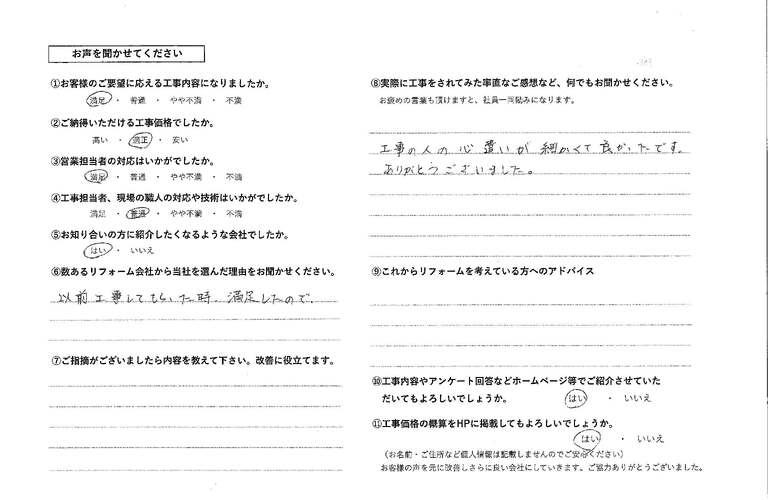 お声を聞かせてください
①お客様のご要望に応える工事内容になりましたか。
満足 ・ 普通 ・ やや不満 ・ 不満
②ご納得いただける工事価格でしたか。
高い ・ 適正 ・ 安い
③営業担当者の対応はいかがでしたか。
満足 ・ 普通 ・ やや不満 ・ 不満
④工事担当者、現場の職人の対応や技術はいかがでしたか。
満足 ・ 普通 ・ やや不満 ・ 不満
⑤お知り合いの方に紹介したくなるような会社でしたか。
はい ・ いいえ
⑥数あるリフォーム会社から当社を選んだ理由をお聞かせください。
以前工事してもらった時、満足したので、
⑦ご指摘がございましたら内容を教えて下さい。改善に役立てます。
⑧実際に工事をされてみた率直なご感想など、何でもお聞かせください。
お褒めの言葉も頂けますと、社員一同励みになります。
工事の人の心遣いが細かくて良かったです。
ありがとうございました。
⑨これからリフォームを考えている方へのアドバイス
⑩工事内容やアンケート回答などホームページ等でご紹介させていた
だいてもよろしいでしょうか。 はい ・ いいえ
⑪工事価格の概算をHPに掲載してもよろしいでしょうか。
はい ・ いいえ
（お名前・ご住所など個人情報は記載しませんのでご安心ください）
お客様の声を元に改善しさらに良い会社にしていきます。ご協力ありがとうございました。